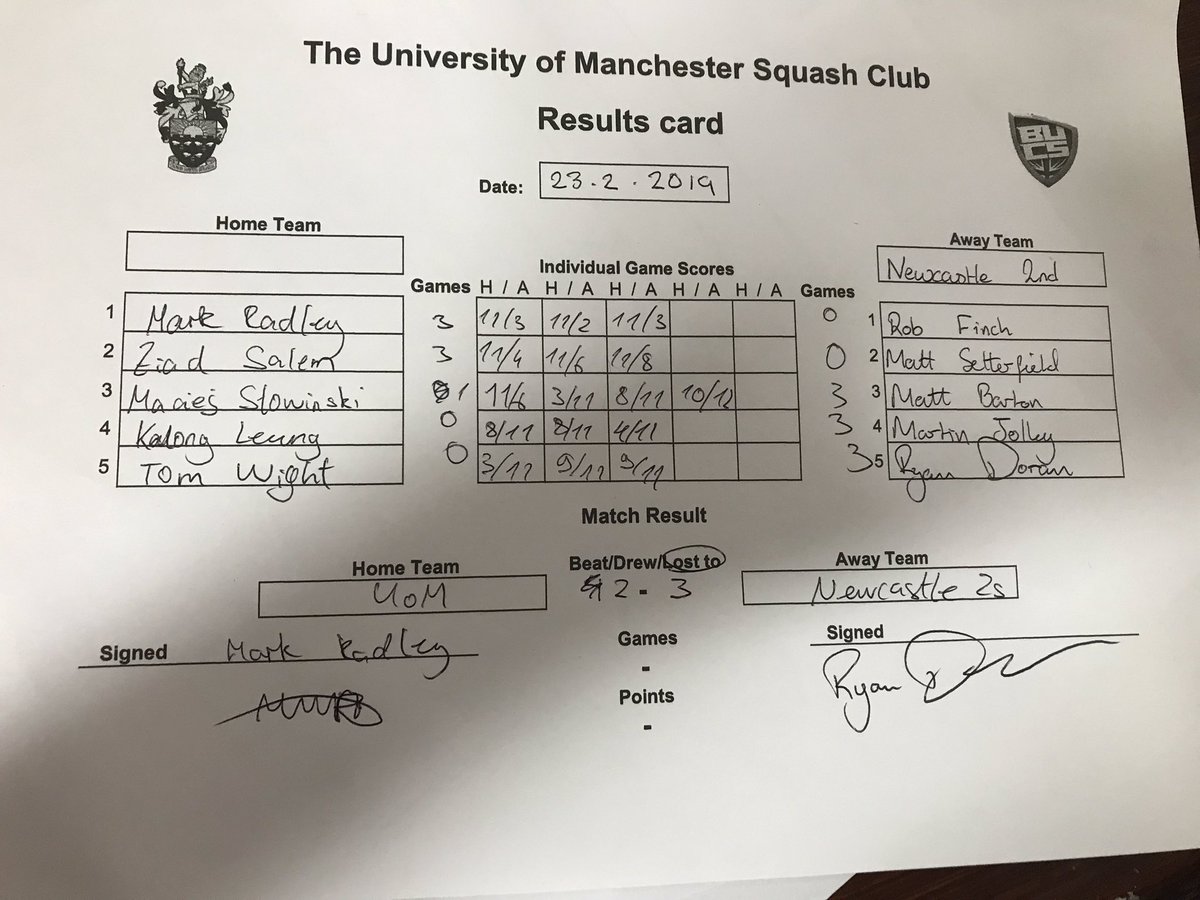 The University of Manchester Squash Club
Results card
BU
CS
Date: 23.2.2019
Home Team
Away Team
Newcastle 2nd
Individual Game Scores
Games H / A H / A H / A H / A H / A Games
1 Mark Radley 3 11/3 11/2 11/3 0 1 Rob Finch
2 Ziad Salem 3 11/4 11/6 11/8 0 2 Matt Setterfield
3 Maciej Slowinski 1 11/6 3/11 8/11 10/12 3 3 Matt Barton
4 Kalong Leung 0 8/11 2/11 4/11 3 4 Martin Jolley
5 Tom Wight 0 3/11 9/11 9/11 3 5 Ryan Doran
Match Result
Home Team Beat/Drew/Lost to Away Team
UoM 2 - 3 Newcastle 2s
Signed Mark Radley Games Signed
-
Ryan
Points
-